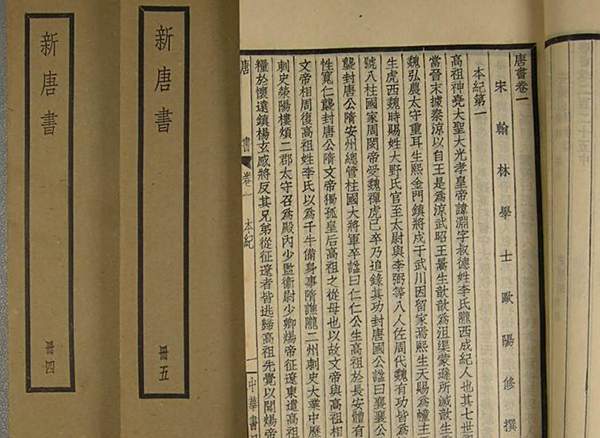 新唐書
冊四
新唐書
冊五
唐書卷一
宋翰林學士歐陽修撰
本紀第一
高祖神堯大聖大光孝皇帝諱淵字叔德姓李氏隴西成紀人也其七世
當晉末據秦涼以自王是為涼武昭王暠生歆歆為沮渠蒙遜所滅歆生
魏弘農太守重耳生熙金門鎮將戍于武川因留家焉熙生天賜為幢主
生虎西魏時賜姓大野氏官至太尉與李弼等八人佐周代魏有功皆為
號八柱國家周閔帝受魏禪虎已卒乃追錄其功封唐國公諡曰襄襄公
襲封唐公隋安州總管柱國大將軍卒諡曰仁仁公生高祖於長安體有
性寬仁襲封唐公隋文帝獨孤皇后高祖之從母也以故文帝與高祖相
文帝相周復高祖姓李氏以為千牛備身事隋譙隴二州刺史大業中歷
刺史滎陽樓煩二郡太守召為殿內少監衛尉少卿煬帝征遼東遣高祖
糧於懷遠鎮楊玄感將反其兄弟從征遼者皆逃歸高祖先覺以聞煬帝
唐書 卷一 本紀 中華書